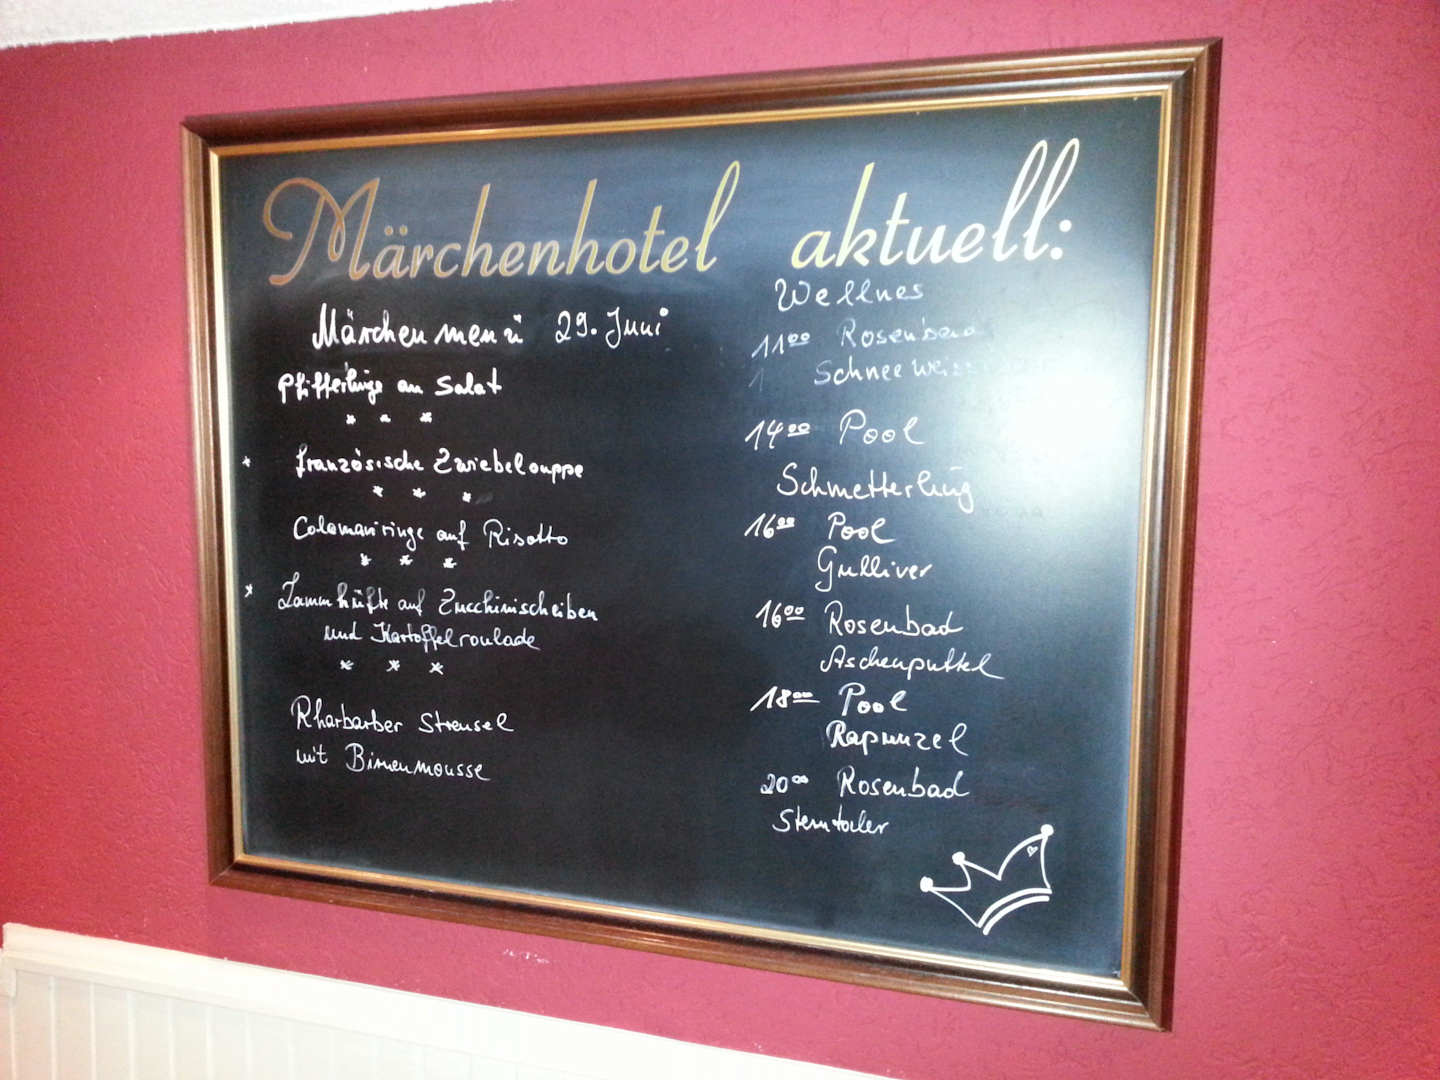 Märchenhotel aktuell:
Märchenmenü 29. Juni
Pfifferlinge an Salat
* * *
* französische Zwiebelsuppe
* * *
Calamariringe auf Risotto
* * *
* Lammhüfte auf Zucchinischeiben
und Kartoffelroulade
* * *
Rharbarber Streusel
mit Birnenmousse
Wellnes
11 00 Rosenbad
14 00 Pool
Schmetterling
16 00 Pool
Gulliver
16 00 Rosenbad
Aschenputtel
18 00 Pool
Rapunzel
20 00 Rosenbad
Sterntaler